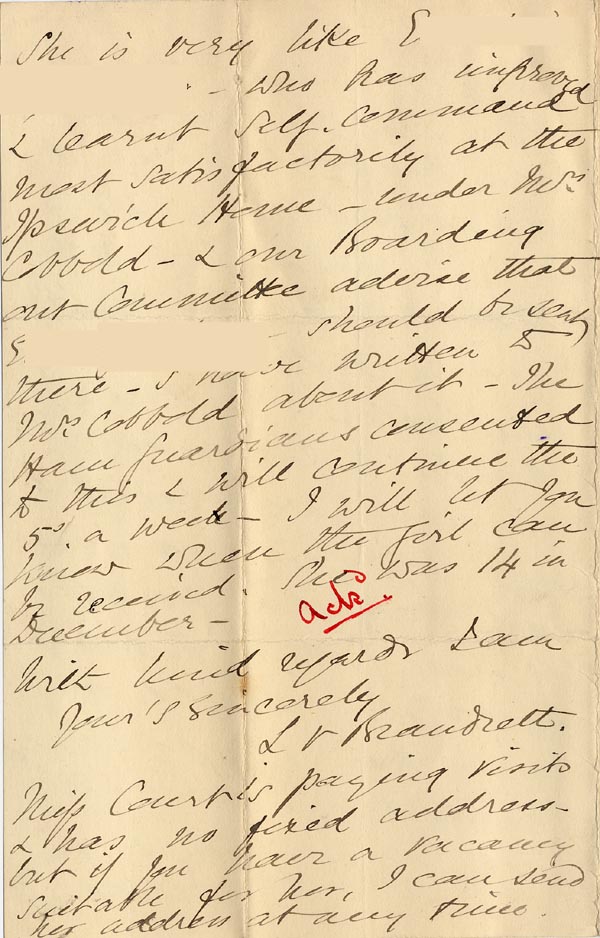 She is very like E
- who has improved
& learnt Self-Command
most satisfactorily at the
Ipswich Home - under Mrs
Cobbold - & our Boarding
out Committee advise that
E. - should be sent
there - I have written to
Mrs Cobbold about it - The
Ham Guardians consented
to this & will continue the
5s a week - I will let you
know when the girl can
be received. She was 14 in
December -
ackd.
With kind regards I am
Your's Sincerely
L V Brandrett.
Miss Court is paying visits
& has no fixed address -
but if you have a vacancy
suitable for her, I can send
her address at any time.